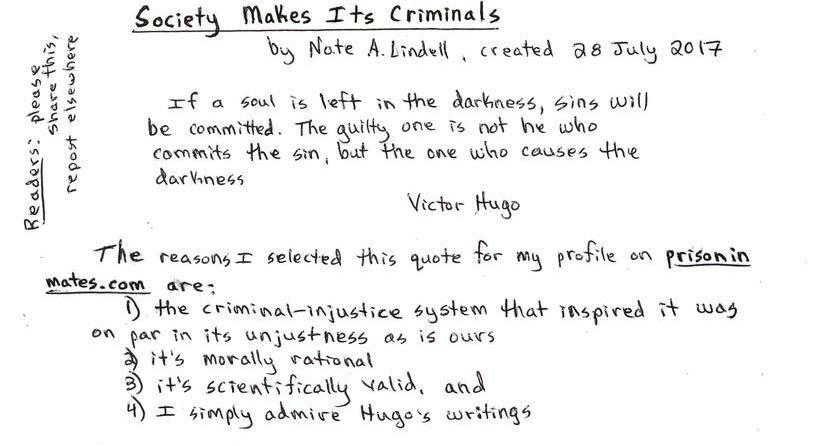 Society Makes Its Criminals
by Nate A. Lindell, created 28 July 2017
Readers: please
share this,
repost elsewhere
If a soul is left in the darkness, sins will
be committed. The guilty one is not he who
commits the sin, but the one who causes the
darkness
Victor Hugo
The reasons I selected this quote for my profile on prisonin
mates.com are:
1) the criminal-injustice system that inspired it was
on par in its unjustness as is ours
2) it's morally rational
3) it's scientifically valid, and
4) I simply admire Hugo's writings